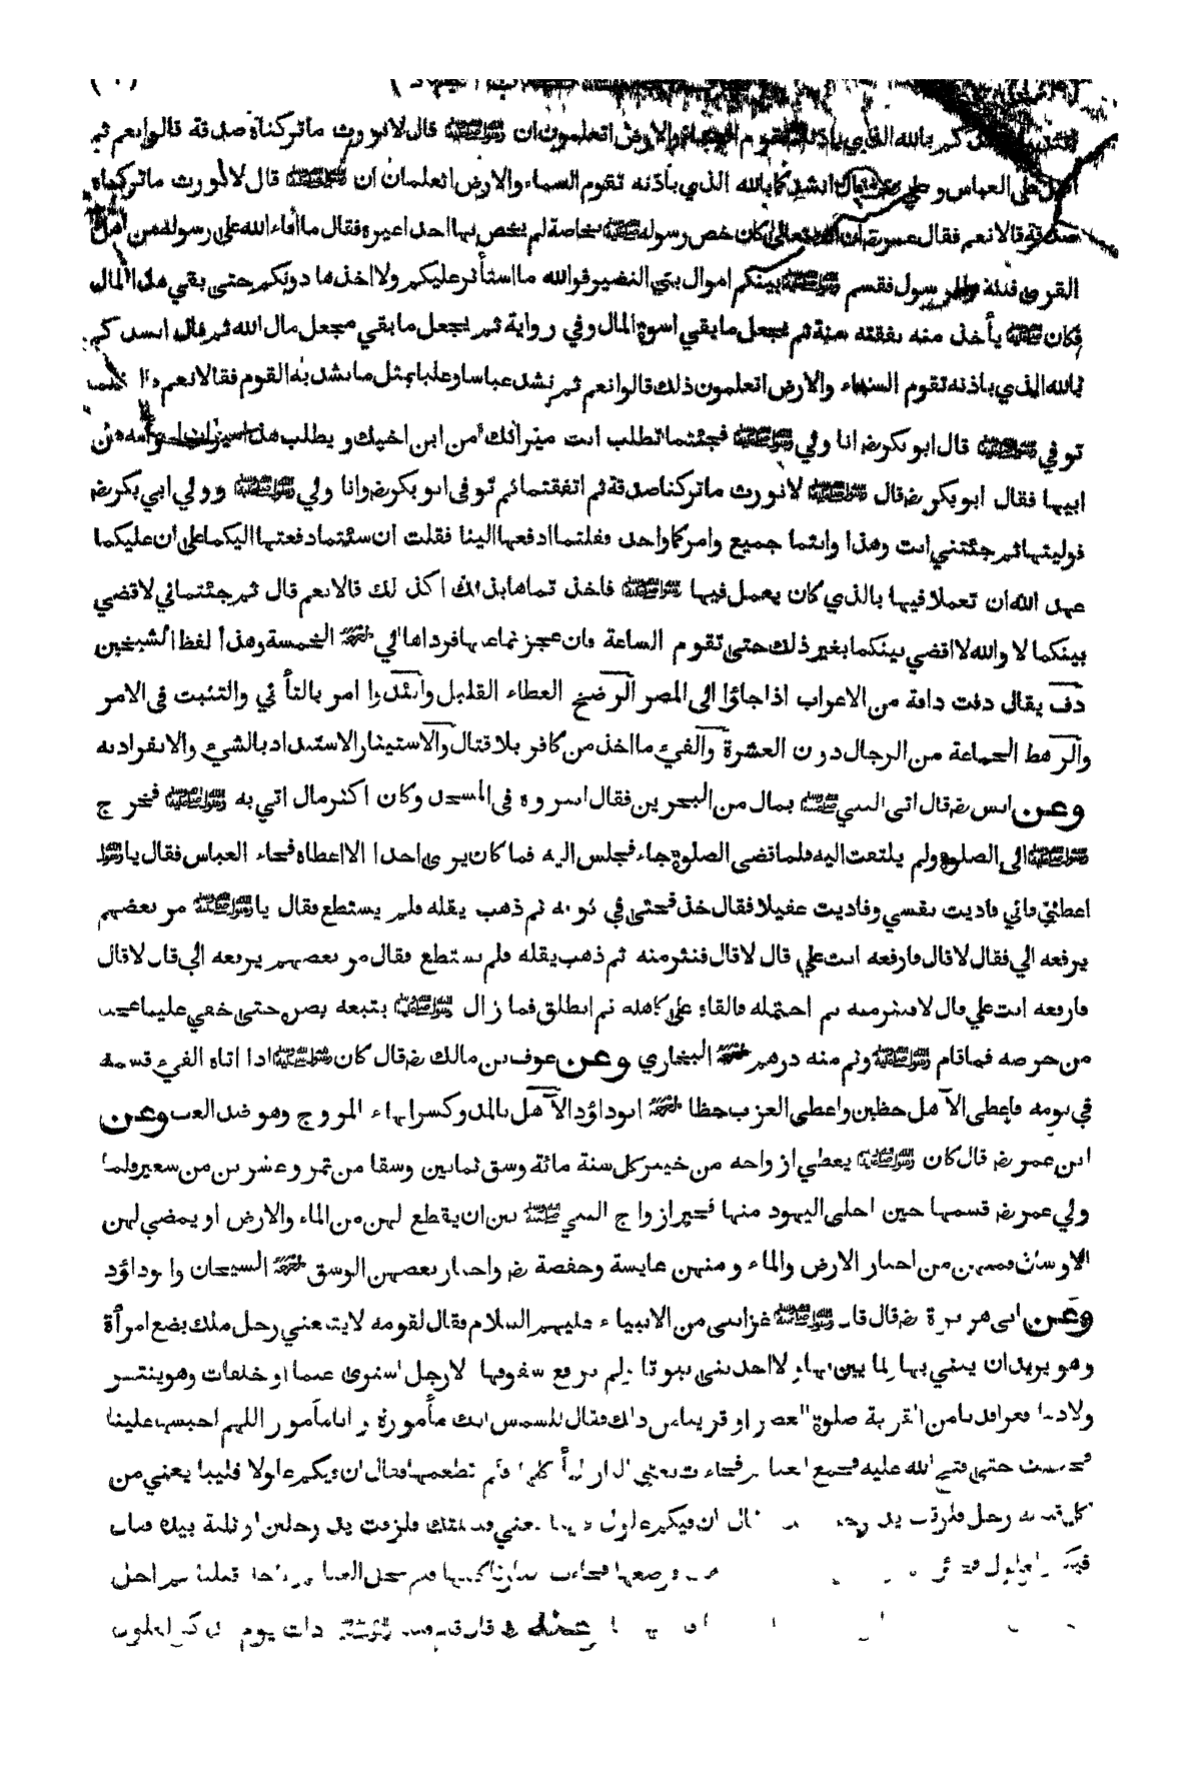 كم بالله الذي باذنه تقوم السماء والارض اتعلمون ان ﷺ قال لا نورث ما تركناه صدقة قالوا نعم ثم
اقبل على العباس وعلي رض فقال انشدكما بالله الذي باذنه تقوم السماء والارض اتعلمان ان ﷺ قال لا نورث ما تركناه
صدقة قالا نعم فقال عمر رض ان الله تعالى كان خص رسوله ﷺ بخاصة لم يخص بها احدا غيره فقال ما أفاء الله على رسوله من اهل
القرى فلله وللرسول فقسم ﷺ بينكم اموال بني النضير فوالله ما استأثر عليكم ولا اخذها دونكم حتى بقي هذا المال
فكان ﷺ يأخذ منه نفقته سنة ثم يجعل ما بقي اسوة المال وفي رواية ثم يجعل ما بقي مجعل مال الله ثم قال انشدكم
بالله الذي باذنه تقوم السماء والارض اتعلمون ذلك قالوا نعم ثم نشد عباسا وعليا بمثل ما نشد به القوم فقالا نعم قال فلما
توفي ﷺ قال ابو بكر رض انا ولي ﷺ فجئتما تطلب انت ميراثك من ابن اخيك ويطلب هذا ميراث امرأته من
ابيها فقال ابو بكر رض قال ﷺ لا نورث ما تركنا صدقة ثم اتفقتما ثم توفى ابو بكر رض وانا ولي ﷺ وولي ابي بكر رض
فوليتها ثم جئتني انت وهذا وانتما جميع وامركما واحد فقلتما ادفعها الينا فقلت ان شئتما دفعتها اليكما على ان عليكما
عهد الله ان تعملا فيها بالذي كان يعمل فيها ﷺ فاخذتماها بذلك اكذلك قالا نعم قال ثم جئتماني لاقضي
بينكما لا والله لا اقضي بينكما بغير ذلك حتى تقوم الساعة فان عجزتما عنها فرداها الي الخمسة وهذا لفظ الشيخين
دف يقال دفت دافة من الاعراب اذا جاؤا الى المصر الرضخ العطاء القليل واتئدوا امر بالتأني والتثبت فى الامر
والرهط الجماعة من الرجال دون العشرة والفيء ما اخذ من كافر بلا قتال والاستيثار الاستبداد بالشيء والانفراد به
وعن انس رض قال اتى النبي ﷺ بمال من البحرين فقال انثروه فى المسجد وكان اكثر مال اتي به ﷺ فخرج
ﷺ الى الصلوة ولم يلتفت اليه فلما قضى الصلوة جاء فجلس اليه فما كان يرى احدا الا اعطاه فجاء العباس فقال يا رسول
اعطني فاني فاديت نفسي وفاديت عقيلا فقال خذ فحثى في ثوبه ثم ذهب يقله فلم يستطع فقال يا ﷺ مر بعضهم
يرفعه الي فقال لا قال فارفعه انت علي قال لا قال فنثر منه ثم ذهب يقله فلم يستطع فقال مر بعضهم يرفعه الي قال لا قال
فارفعه انت علي قال لا فنثر منه ثم احتمله فالقاه على كاهله ثم انطلق فما زال ﷺ يتبعه بصره حتى خفي علينا عجبا
من حرصه فما قام ﷺ وثم منه درهم البخاري وعن عوف بن مالك رض قال كان ﷺ اذا اتاه الفيء قسمه
في يومه فاعطى الآهل حظين واعطى العزب حظا ابو داؤد الآهل بالمد وكسر الهاء المزوج وهو ضد العزب وعن
ابن عمر رض قال كان ﷺ يعطي ازواجه من خيبر كل سنة مائة وسق ثمانين وسقا من تمر وعشرين من شعير فلما
ولي عمر رض قسمها حين اجلى اليهود منها فخير ازواج النبي ﷺ بين ان يقطع لهن من الماء والارض او يمضي لهن
الاوساق فمنهن من اختار الارض والماء ومنهن عايشة وحفصة رض واختار بعضهن الوسق الشيخان وابو داؤد
وعن ابى هريرة رض قال قال ﷺ غزا نبى من الانبياء عليهم السلام فقال لقومه لا يتبعني رجل ملك بضع امرأة
وهو يريد ان يبني بها ولما يبن بها ولا احد بنى بيوتا ولم يرفع سقوفها ولا رجل اشترى غنما او خلفات وهو ينتظر
ولادها فغزا فدنا من القرية صلوة العصر او قريبا من ذلك فقال للشمس انك مأمورة وانا مأمور اللهم احبسها علينا
فحبست حتى فتح الله عليه فجمع الغنائم فجاءت يعني النار لتأكلها فلم تطعمها فقال ان فيكم غلولا فليبايعني من
كل قبيلة رجل فلزقت يد رجل قال ان فيكم غلول فليبايعني قبيلتك فلزقت يد رجلين او ثلثة بيده فقال
فيكم الغلول فوضعها فجاءت النار فاكلتها ثم احل
وعنه رض قال ﷺ ذات يوم فذكر الغلول